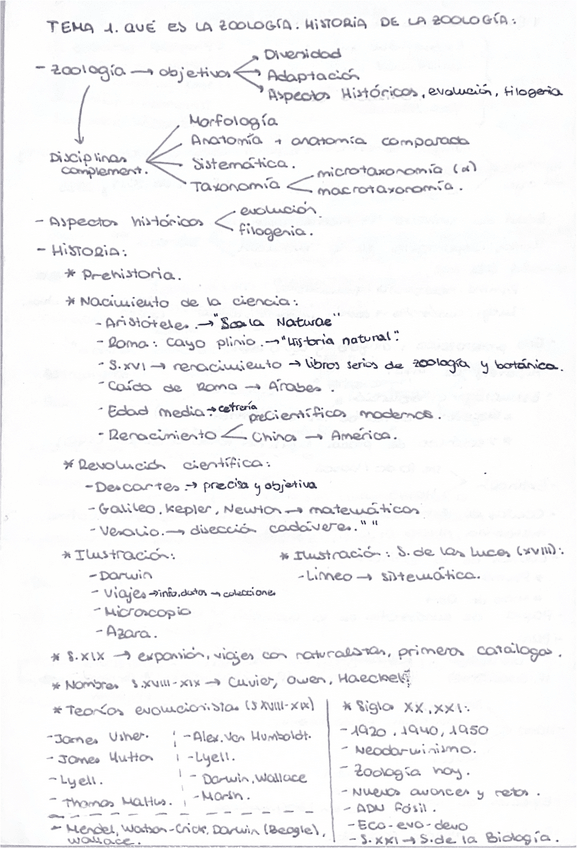 TEMA 1. QUÉ ES LA ZOOLOGÍA. HISTORIA DE LA ZOOLOGÍA:
- Zoología → objetivos
Diversidad
Adaptación
Aspectos Históricos, evolución, filogenia
Disciplinas complement.
Morfología
Anatomía + anatomía comparada
Sistemática.
Taxonomía
microtaxonomía (α)
macrotaxonomía.
- Aspectos históricos
evolución.
filogenia.
- HISTORIA:
* Prehistoria.
* Nacimiento de la ciencia:
- Aristóteles. → "Scala Naturae"
- Roma: Cayo plinio. → "Historia natural"
- S.XVI → renacimiento → libros serios de zoología y botánica.
- Caída de Roma → Árabes.
- Edad media → cetrería
- Renacimiento
precientíficos modernos.
China → América.
* Revolución científica:
- Descartes. → precisa y objetiva
- Galileo, Kepler, Newton → matemáticas
- Vesalio. → disección cadáveres. " "
* Ilustración:
- Darwin
- Viajes → info, datos → colecciones
- Microscopio
- Azara.
* Ilustración: S. de las Luces (XVIII):
- Linneo → sistemática.
* S.XIX → expansión, viajes con naturalistas, primeros catálogos.
* Nombres S.XVIII-XIX → Cuvier, Owen, Haeckel
* Teorías evolucionistas (S.XVIII-XIX)
- James Usher.
- James Hutton
- Lyell.
- Thomas Maltus.
- Alex. Von Humboldt.
- Lyell.
- Darwin, Wallace
- Mendel, Watson-Crick, Darwin (Beagle), Wallace.
* Siglo XX, XXI:
- 1920, 1940, 1950
- Neodarwinismo.
- Zoología hoy.
- Nuevos avances y retos.
- ADN Fósil.
- Eco-evo-devo
- S.XXI → S. de la Biología.